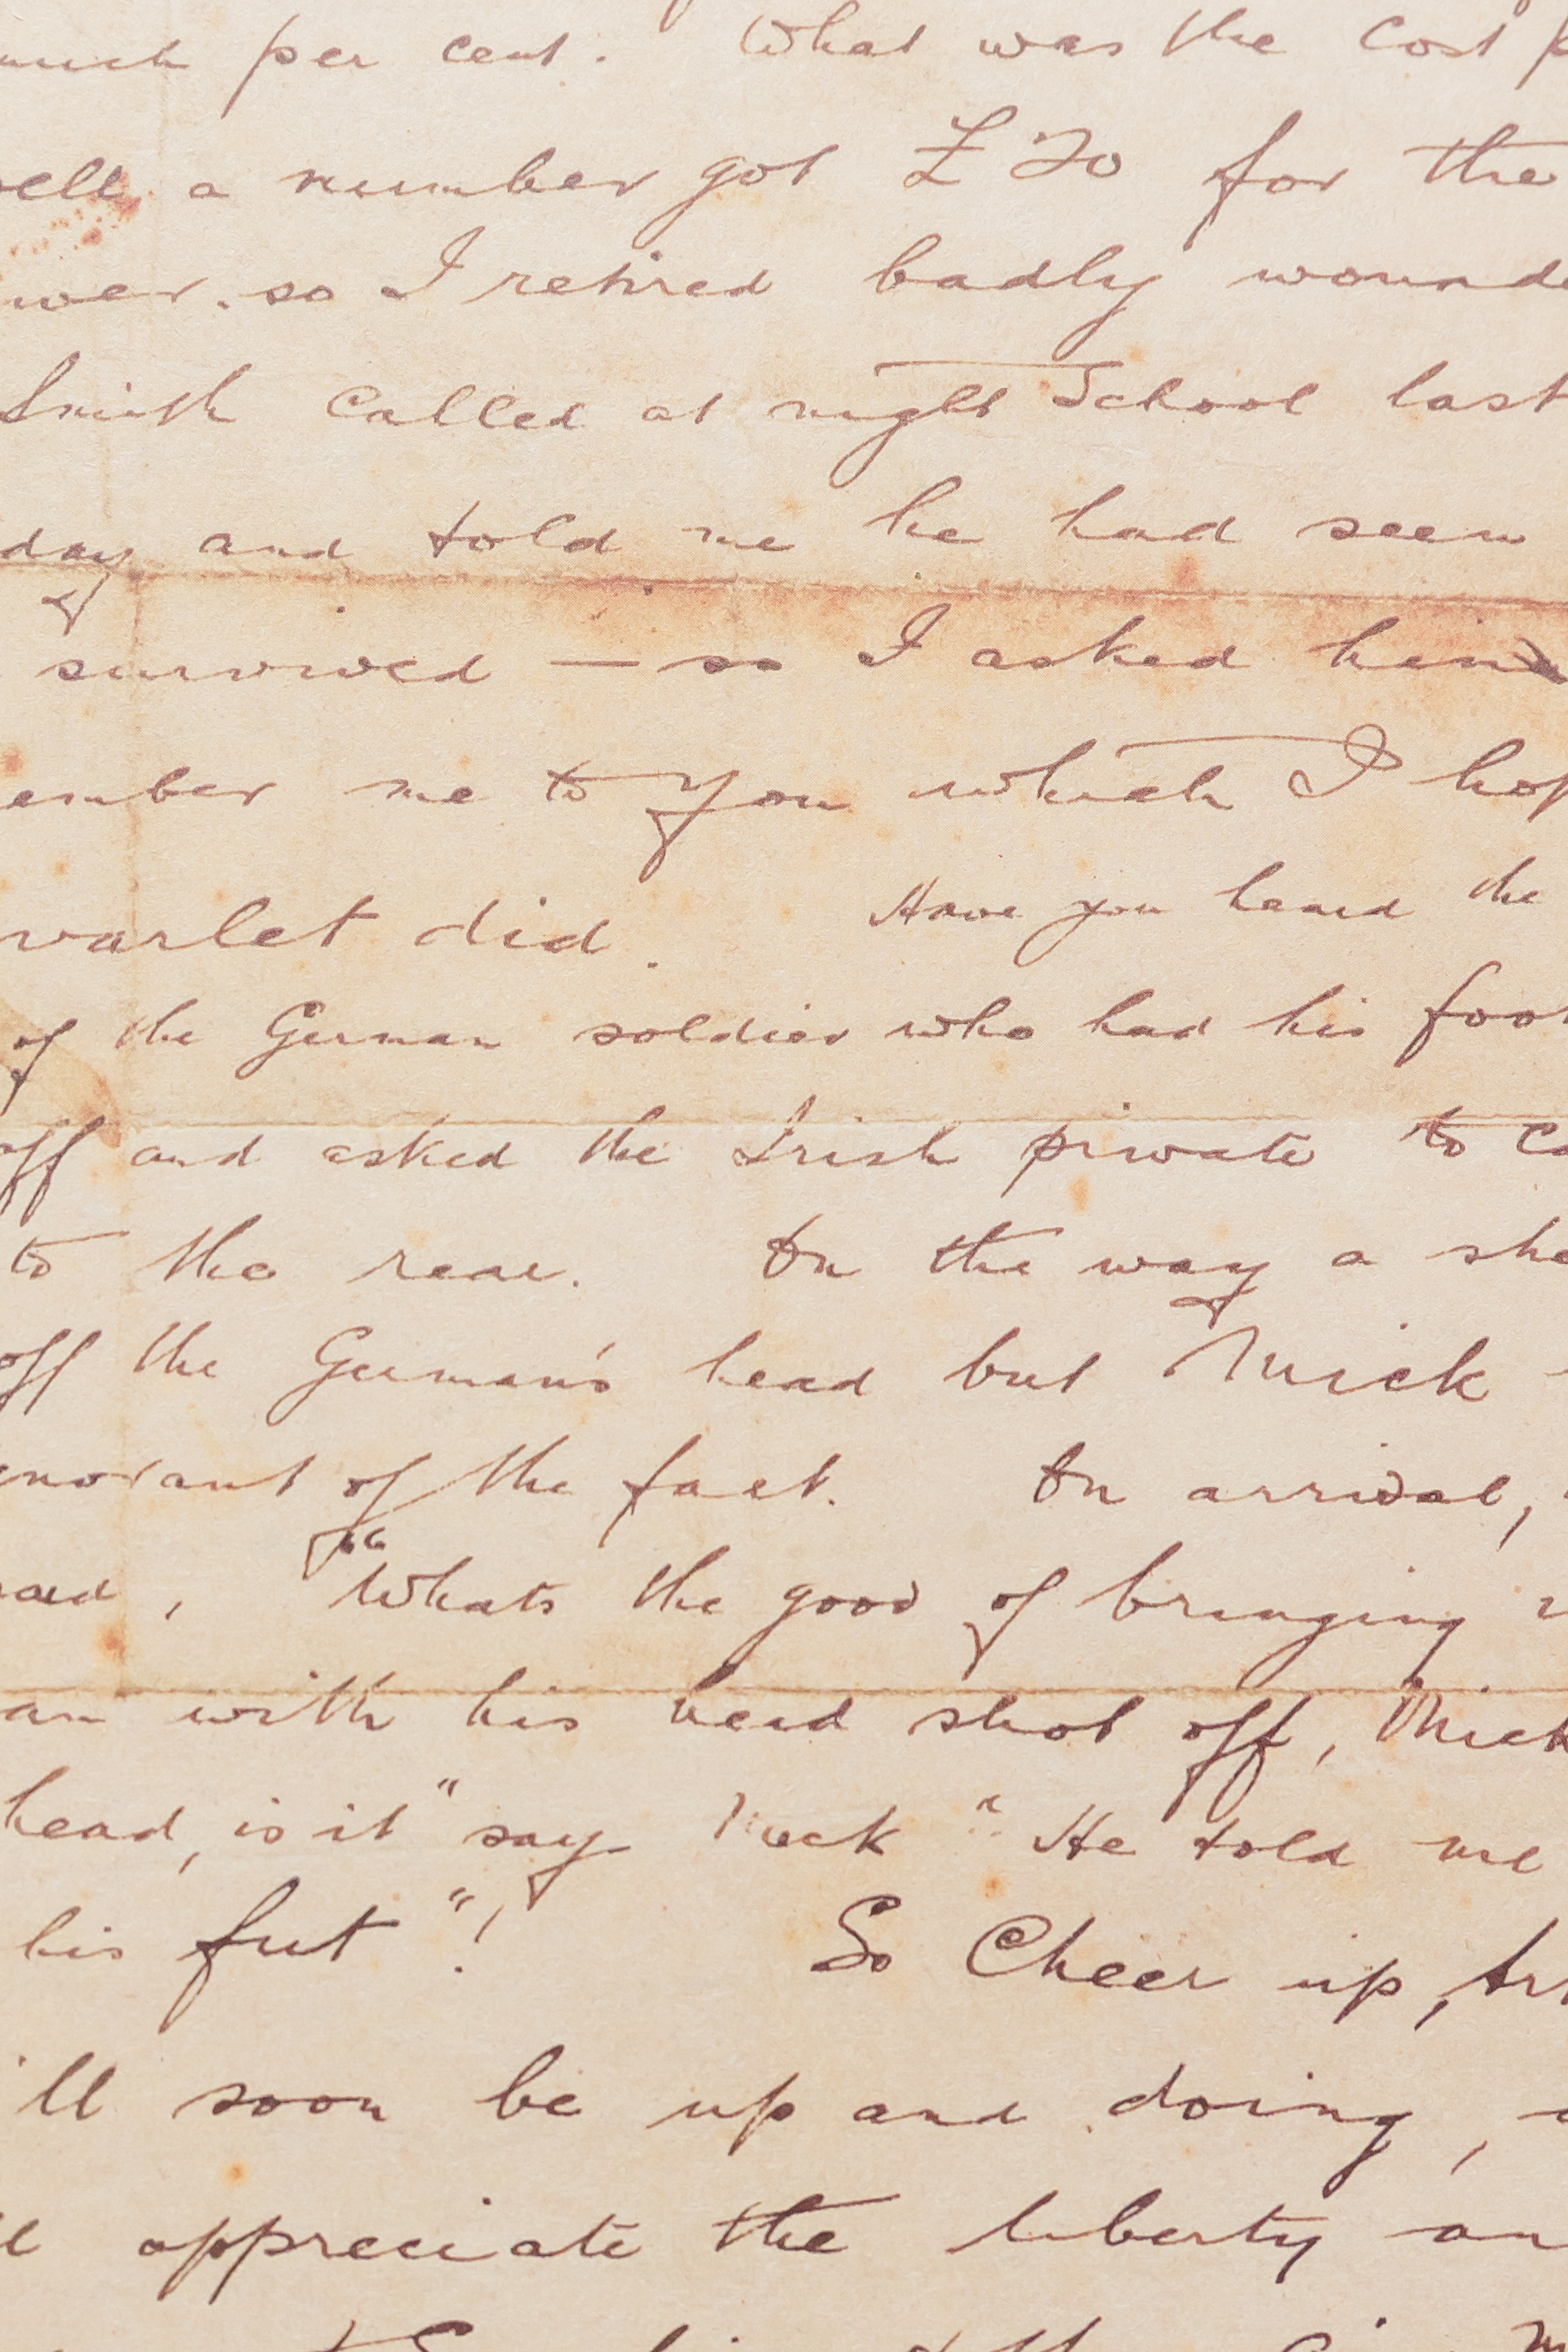 much per cent. What was the Cost p
well a number got £20 for the
wer. so I retired badly wounde
Smith called at night School last
day and told me he had seen
survived — so I asked him
ember me to you which I hop
varlet did. Have you heard the
of the German soldier who had his foot
off and asked the Irish private to ca
to the rear. On the way a she
off the German's head but Mick
gnorant of the fact. On arrival,
said, "Whats the good of bringing
an with his head shot off, Mick
head, is it" say Mick " He told me
his fut"! So Cheer up, Art
'll soon be up and doing,
ll appreciate the liberty an